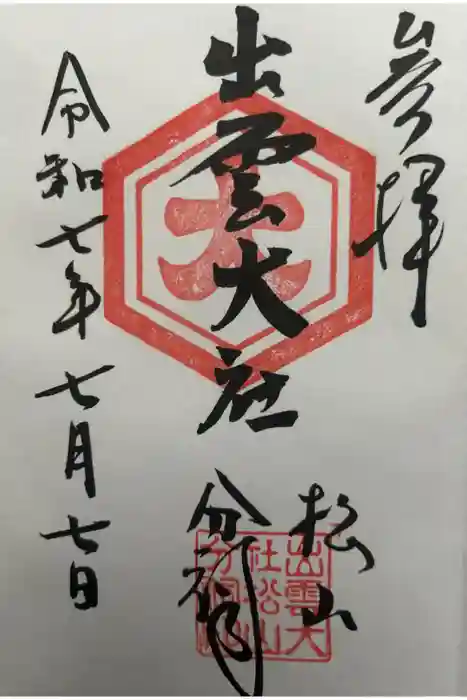 参拝
出雲大社
大
松山
分祠
出雲大
社松山
分祠印
令和七年七月七日